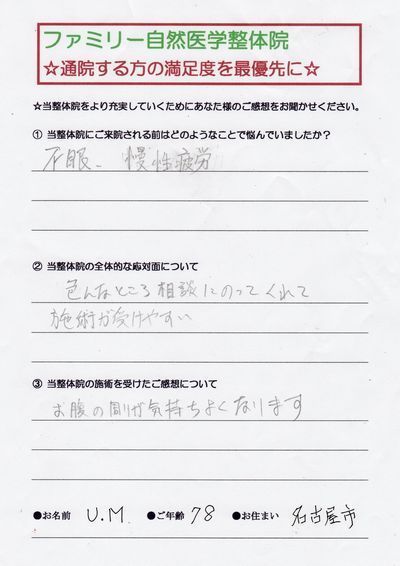 ファミリー自然医学整体院
☆通院する方の満足度を最優先に☆
☆当整体院をより充実していくためにあなた様のご感想をお聞かせください。
① 当整体院にご来院される前はどのようなことで悩んでいましたか？
不眠、慢性疲労
② 当整体院の全体的な応対面について
色んなところ相談にのってくれて
施術が受けやすい
③ 当整体院の施術を受けたご感想について
お腹の周りが気持ちよくなります
●お名前 U.M. ●ご年齢 78 ●お住まい 名古屋市